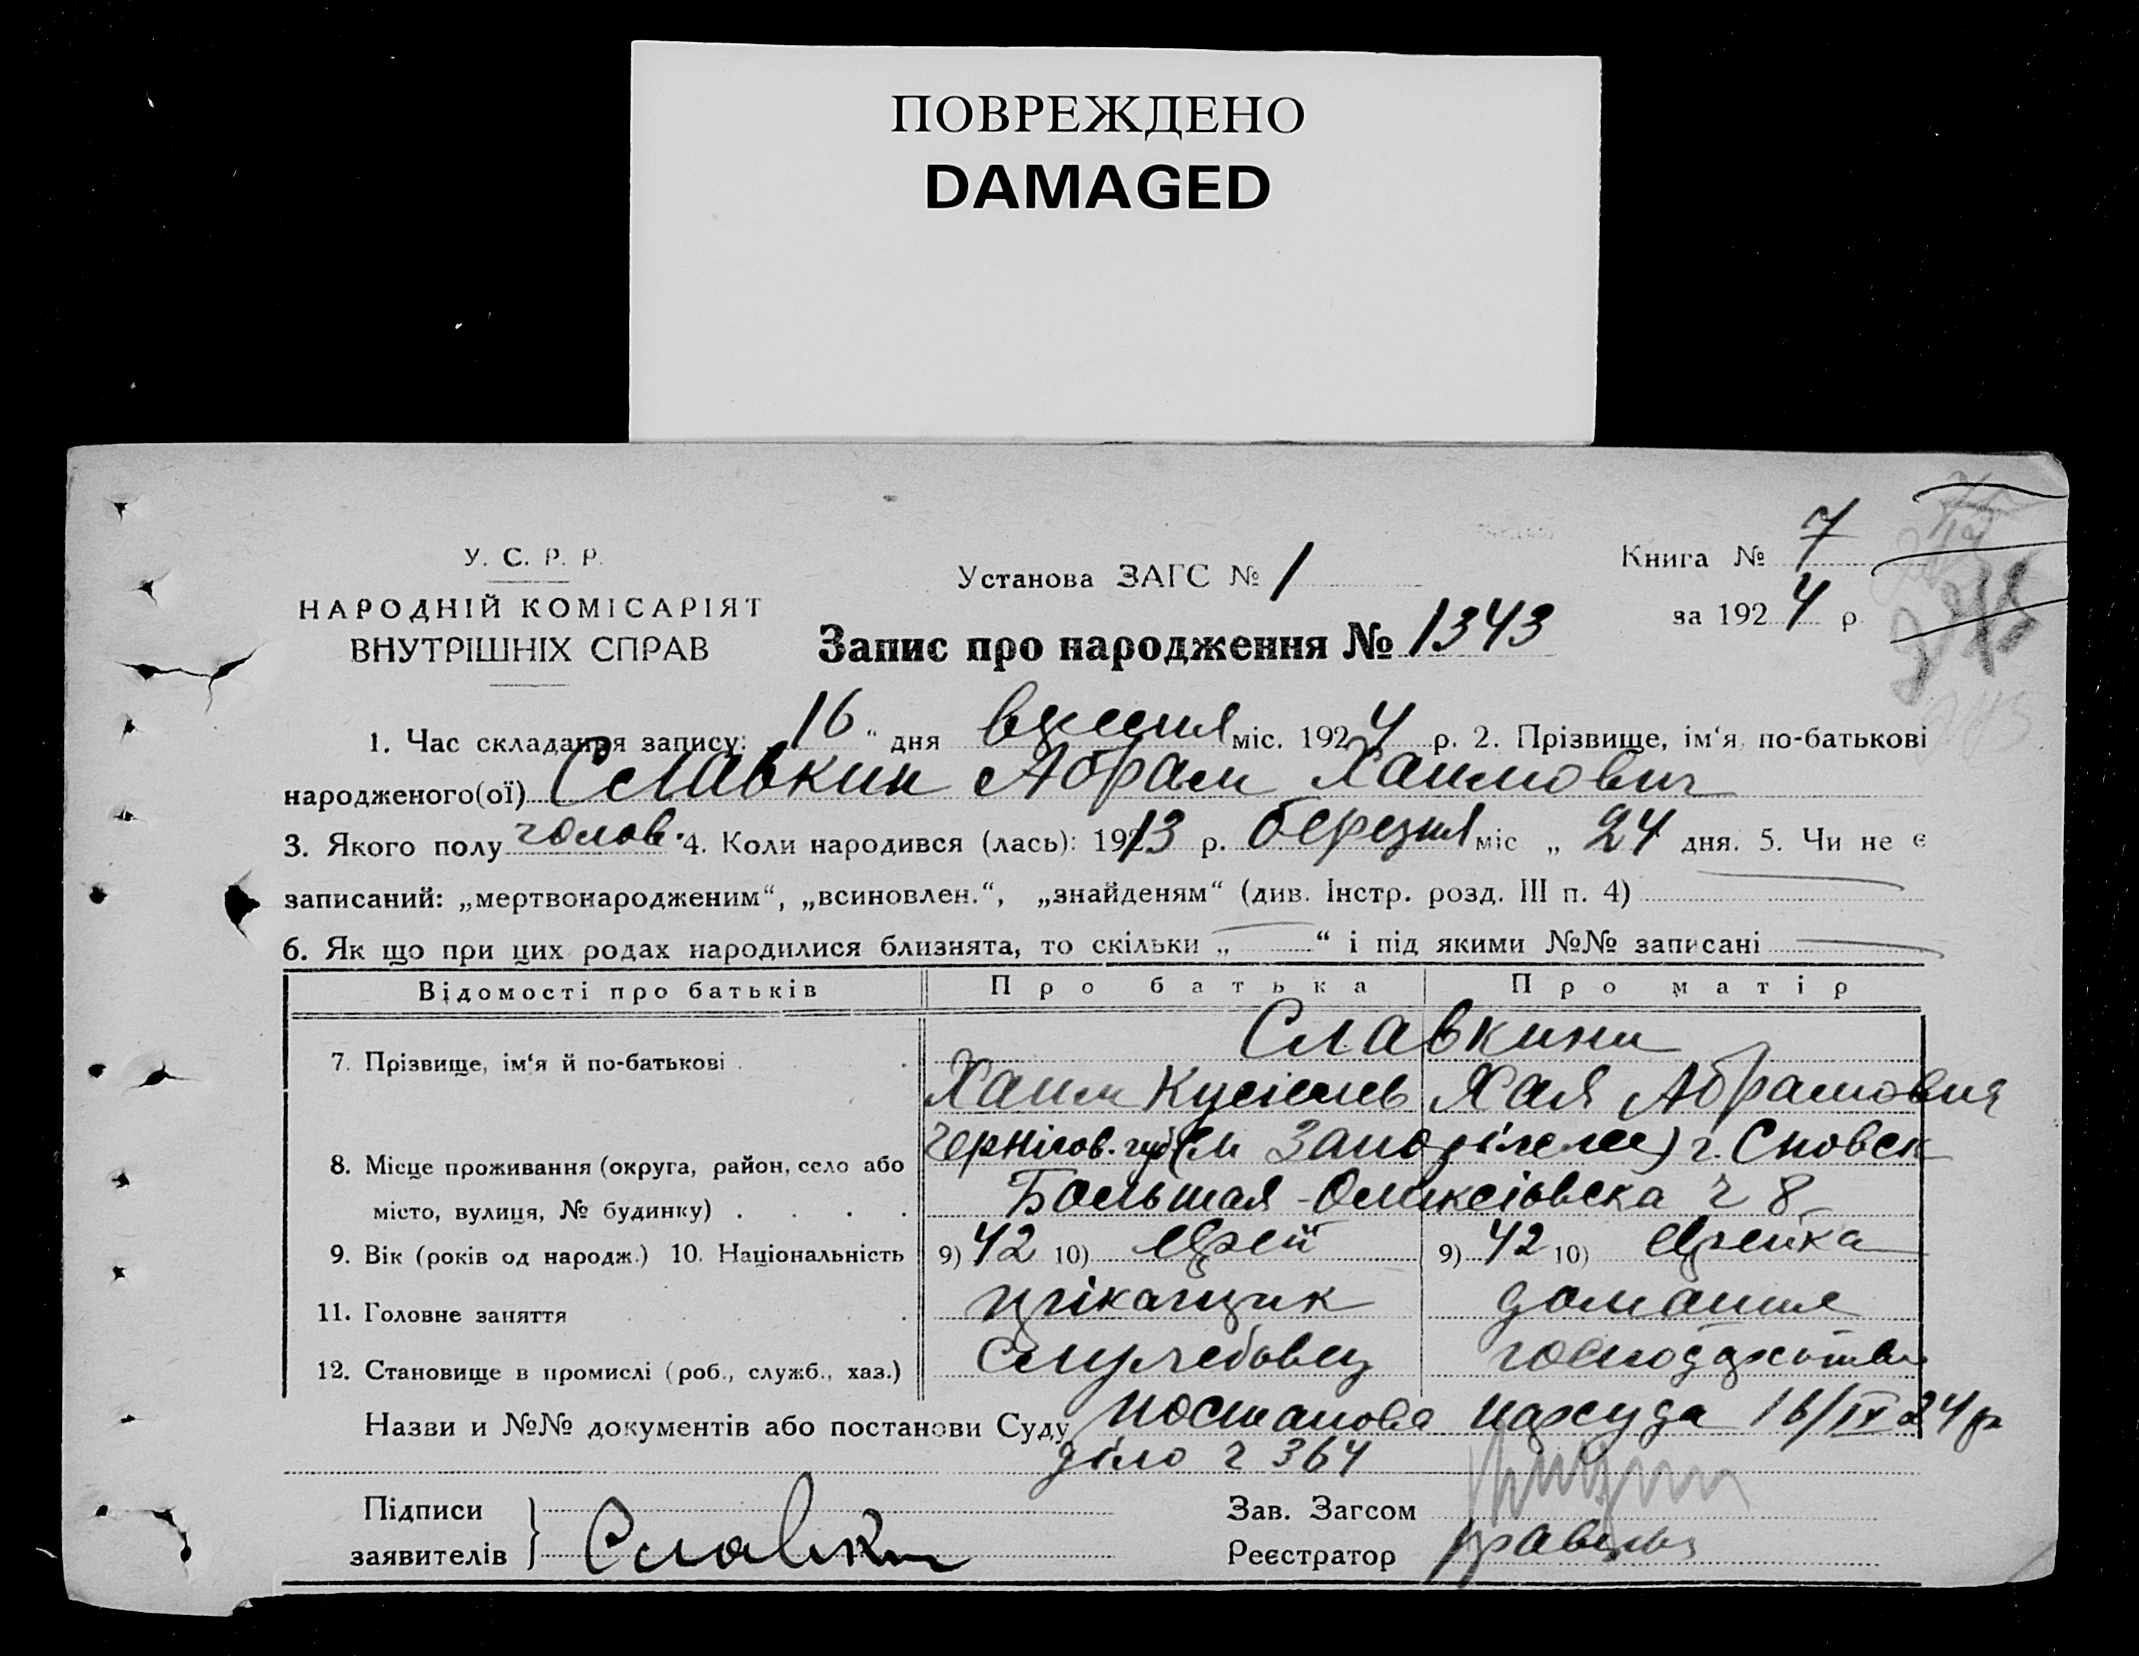 ПОВРЕЖДЕНО
DAMAGED
У. С. Р. Р.
НАРОДНІЙ КОМІСАРІЯТ
ВНУТРІШНІХ СПРАВ
Установа ЗАГС № 1
Книга № 7
за 1924 р.
Запис про народження № 1343
1. Час складання запису: 16 “ дня вересня міс. 1924 р. 2. Прізвище, ім‘я, по-батькові
народженого(ої) Славкин Абрам Хаимович
3. Якого полу чолов. 4. Коли народився (лась): 1913 р. березня міс „ 24 дня. 5. Чи не є
записаний: „мертвонародженим“, „всиновлен.“, „знайденям“ (див. Інстр. розд. III п. 4)
6. Як що при цих родах народилися близнята, то скільки „ “ і під якими №№ записані
Відомості про батьків Про батька Про матір
Славкини
7. Прізвище, ім‘я й по-батькові
Хаим Кусіель Хая Абрамовна
Чернігов. губ. г. Сновск
8. Місце проживання (округа, район, село або
місто, вулиця, № будинку) Большая Олексіівска ч 8
9. Вік (років од народж.) 10. Національність 9) 42 10) Еврей 9) 42 10) Еврейка
11. Головне заняття прікащик домашне
12. Становище в промислі (роб., служб., хаз.) службовец господарство
Назви и №№ документів або постанови Суду Постанова нарсуда 16/IX 24 р
діло ч 364
Підписи
заявителів Славкин
Зав. Загсом
Реєстратор